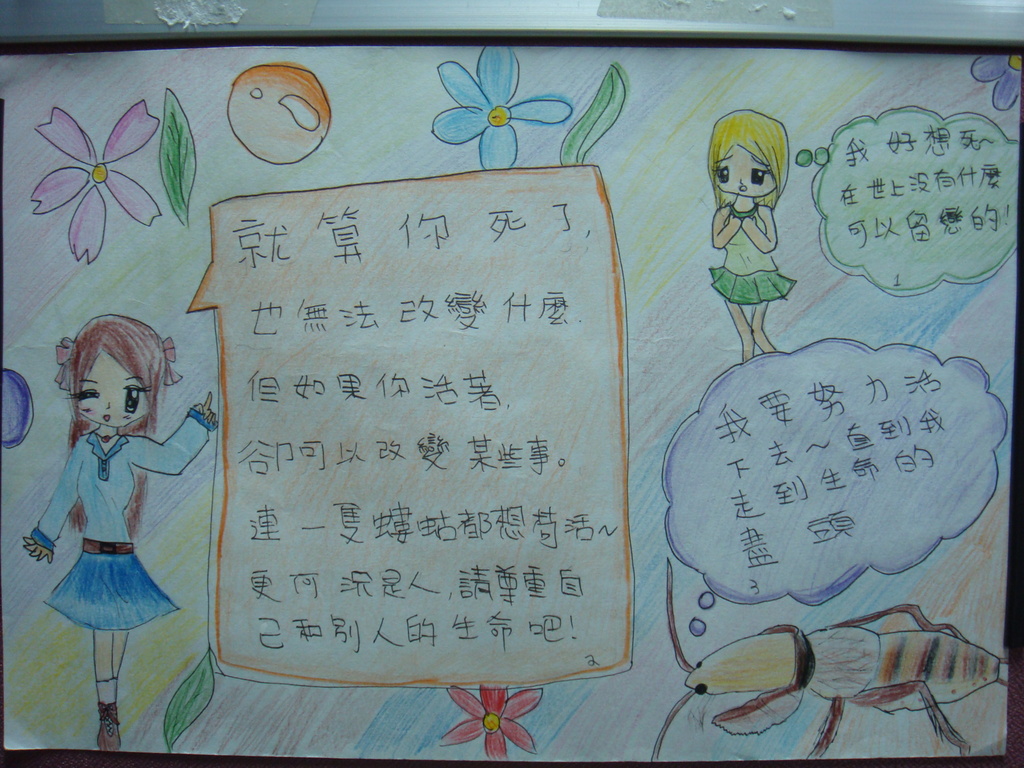 我好想死～
在世上沒有什麼
可以留戀的!
1
就算你死了,
也無法改變什麼.
但如果你活著,
卻可以改變某些事。
連一隻螻蛄都想苟活～
更何況是人,請尊重自
己和別人的生命吧!
2
我要努力活
下去～直到我
走到生命的
盡頭
3